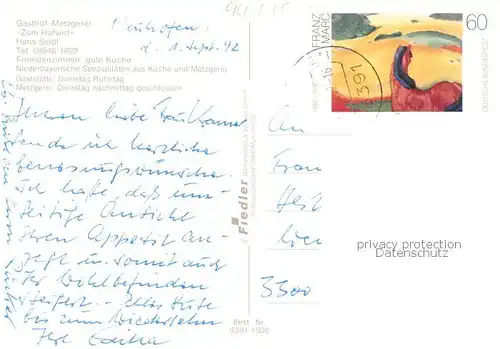 Gasthof-Metzgerei
»Zum Hofwirt«
Hans Seidl
Tel. 08546/1829
Fremdenzimmer, gute Küche
Niederbayerische Spezialitäten aus Küche und Metzgerei
Gaststätte: Dienstag Ruhetag
Metzgerei: Dienstag nachmittag geschlossen
d. 1. Sept. 92
Ihnen, liebe Frau
sende ich herzliche
Genesungswünsche.
Ich hoffe, daß um-
seitige Ansicht
Ihren Appetit an-
regt u. somit auch
Ihr Wohlbefinden
steigert. - Alles Gute
bis zum Wiedersehn
Ihre
Fiedler
Best. Nr.
8391 1506
FRANZ
MARC
60
DEUTSCHE BUNDESPOST
8391
An
Frau
3300
privacy protection
Datenschutz